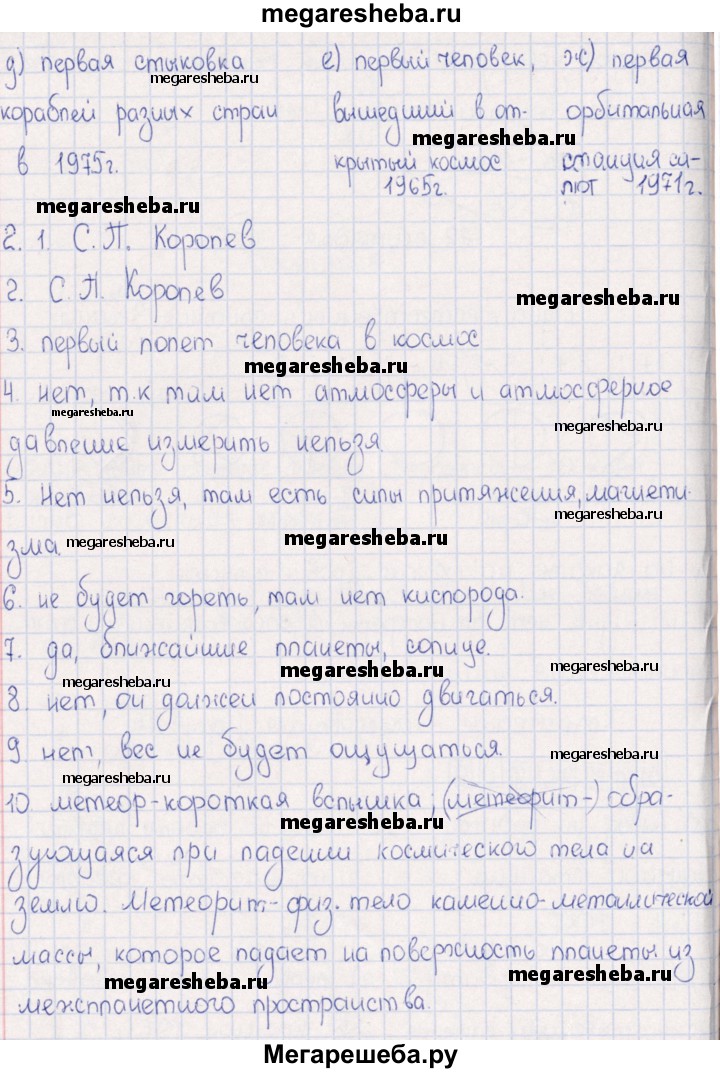 megaresheba.ru
д) первая стыковка е) первый человек, ж) первая
megaresheba.ru megaresheba.ru
кораблей разных стран вышедший в от- орбитальная
megaresheba.ru
в 1975г. крытый космос станция са-
1965г. лют 1971г.
megaresheba.ru
2. 1. С.П. Королев
2. С.П. Королев
megaresheba.ru
3. первый полет человека в космос
megaresheba.ru
4. нет, т.к там нет атмосферы и атмосферное
megaresheba.ru megaresheba.ru
давление измерить нельзя.
5. Нет нельзя, там есть силы притяжения, магнети-
megaresheba.ru
зма. megaresheba.ru megaresheba.ru
6. не будет гореть, там нет кислорода.
7. да, ближайшие планеты, солнце.
megaresheba.ru megaresheba.ru megaresheba.ru
8. нет, он должен постоянно двигаться.
9 нет, вес не будет ощущаться.
megaresheba.ru megaresheba.ru megaresheba.ru
10 метеор-короткая вспышка, (метеорит-) обра-
megaresheba.ru
зующаяся при падении космического тела на
землю. Метеорит-физ. тело каменно-металлической
массы, которое падает на поверхность планеты из
megaresheba.ru megaresheba.ru
межпланетного пространства.
Мегарешеба.ру